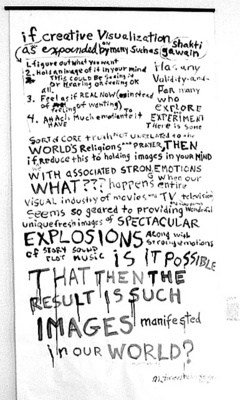 if creative Visualization
(as expounded on by many such as shakti gawain)
1. figure out what you want
2. Hold an image of it in your mind
This could be seeing it
or Hearing or feeling OK
all.
3. Feel as if REAL NOW (as instead
of feeling of wanting)
4. Attach Much emotion to it
TO HAVE
Has any
Validity-and-
For many
who
EXPLORE
EXPERIMENT
There is some
SORT of CORE truth not unrelated to the
WORLD'S Religions PRAYER, THEN
if, reduce this to holding images in your MIND
WITH ASSOCIATED STRONG EMOTIONS
WHAT??? happens when our entire
VISUAL industry of movies TV television
Seems so geared to providing Wonderful
unique fresh images of SPECTACULAR
EXPLOSIONS Along with strong emotions
OF STORY SOUND
PLOT MUSIC
is it POSSIBLE
THAT THEN THE
RESULT IS SUCH
IMAGES manifested
in OUR WORLD?